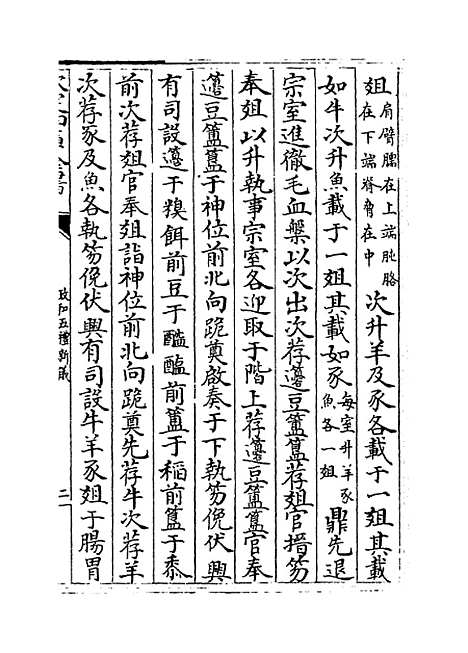 俎肩臂臑在上端肫胳在下端脊脅在中次升羊及豕各載于一俎其載
如牛次升魚載于一俎其載如豕每室升羊豕魚各一俎鼎先退
宗室進徹毛血槃以次出次荐籩豆簠簋荐俎官搢笏
奉俎以升執事宗室各迎取于階上荐籩豆簠簋官奉
籩豆簠簋于神位前北向跪奠啟奏于下執笏俛伏興
有司設籩于糗餌前豆于醢醢前簠于稻前簋于黍
前次荐俎官奉俎詣神位前北向跪奠先荐牛次荐羊
次荐豕及魚各執笏俛伏興有司設牛羊豕俎于腸胃
政和五禮新儀
二